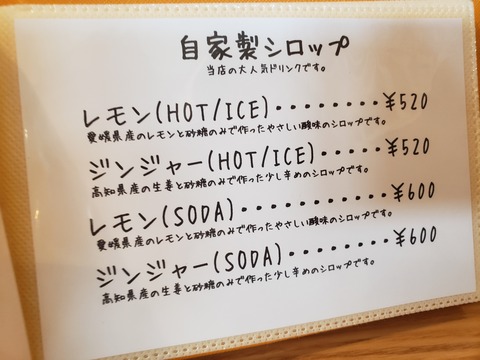 自家製シロップ
当店の大人気ドリンクです。
レモン(HOT/ICE)・・・・・・・・¥520
愛媛県産のレモンと砂糖のみで作ったやさしい酸味のシロップです。
ジンジャー(HOT/ICE)・・・・・¥520
高知県産の生姜と砂糖のみで作った少し辛めのシロップです。
レモン(SODA)・・・・・・・・・・・¥600
愛媛県産のレモンと砂糖のみで作ったやさしい酸味のシロップです。
ジンジャー(SODA)・・・・・・・・¥600
高知県産の生姜と砂糖のみで作った少し辛めのシロップです。